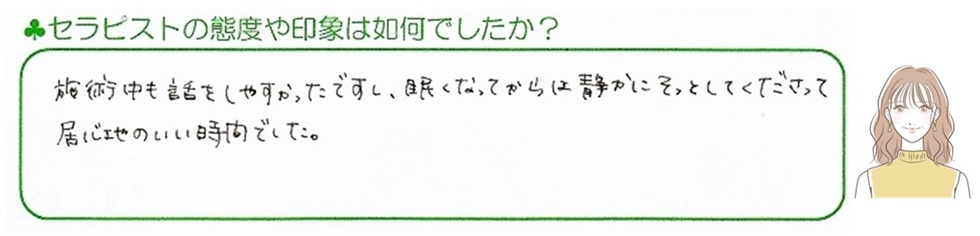 ♣セラピストの態度や印象は如何でしたか?
施術中も話をしやすかったですし、眠くなってからは静かにそっとしてくださって
居心地のいい時間でした。